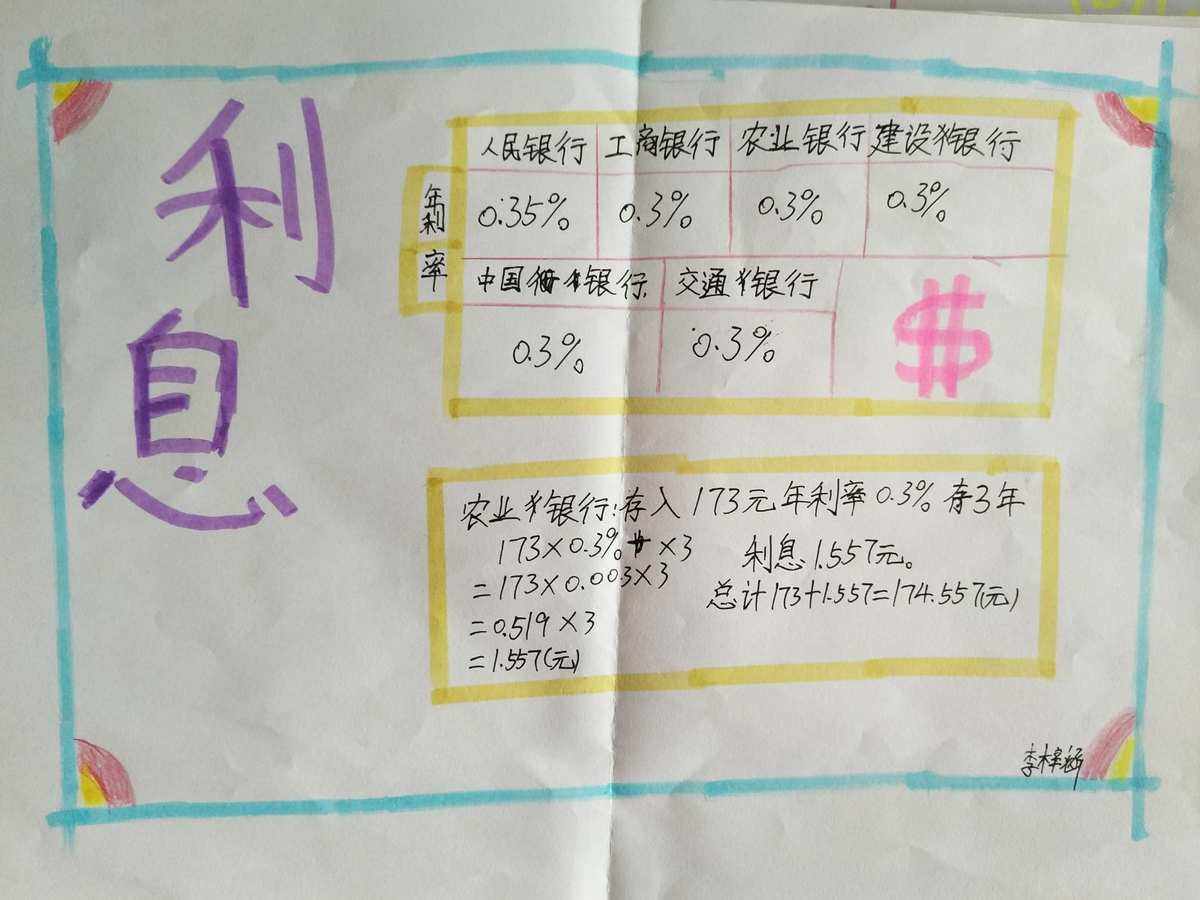 利息
人民银行 工商银行 农业银行 建设银行
年利率
0.35% 0.3% 0.3% 0.3%
中国银行 交通银行
0.3% 0.3%
$
农业银行:存入173元年利率0.3%存3年
173×0.3%×3
=173×0.003×3
=0.519×3
=1.557(元)
利息1.557元。
总计173+1.557=174.557(元)
李梓涵